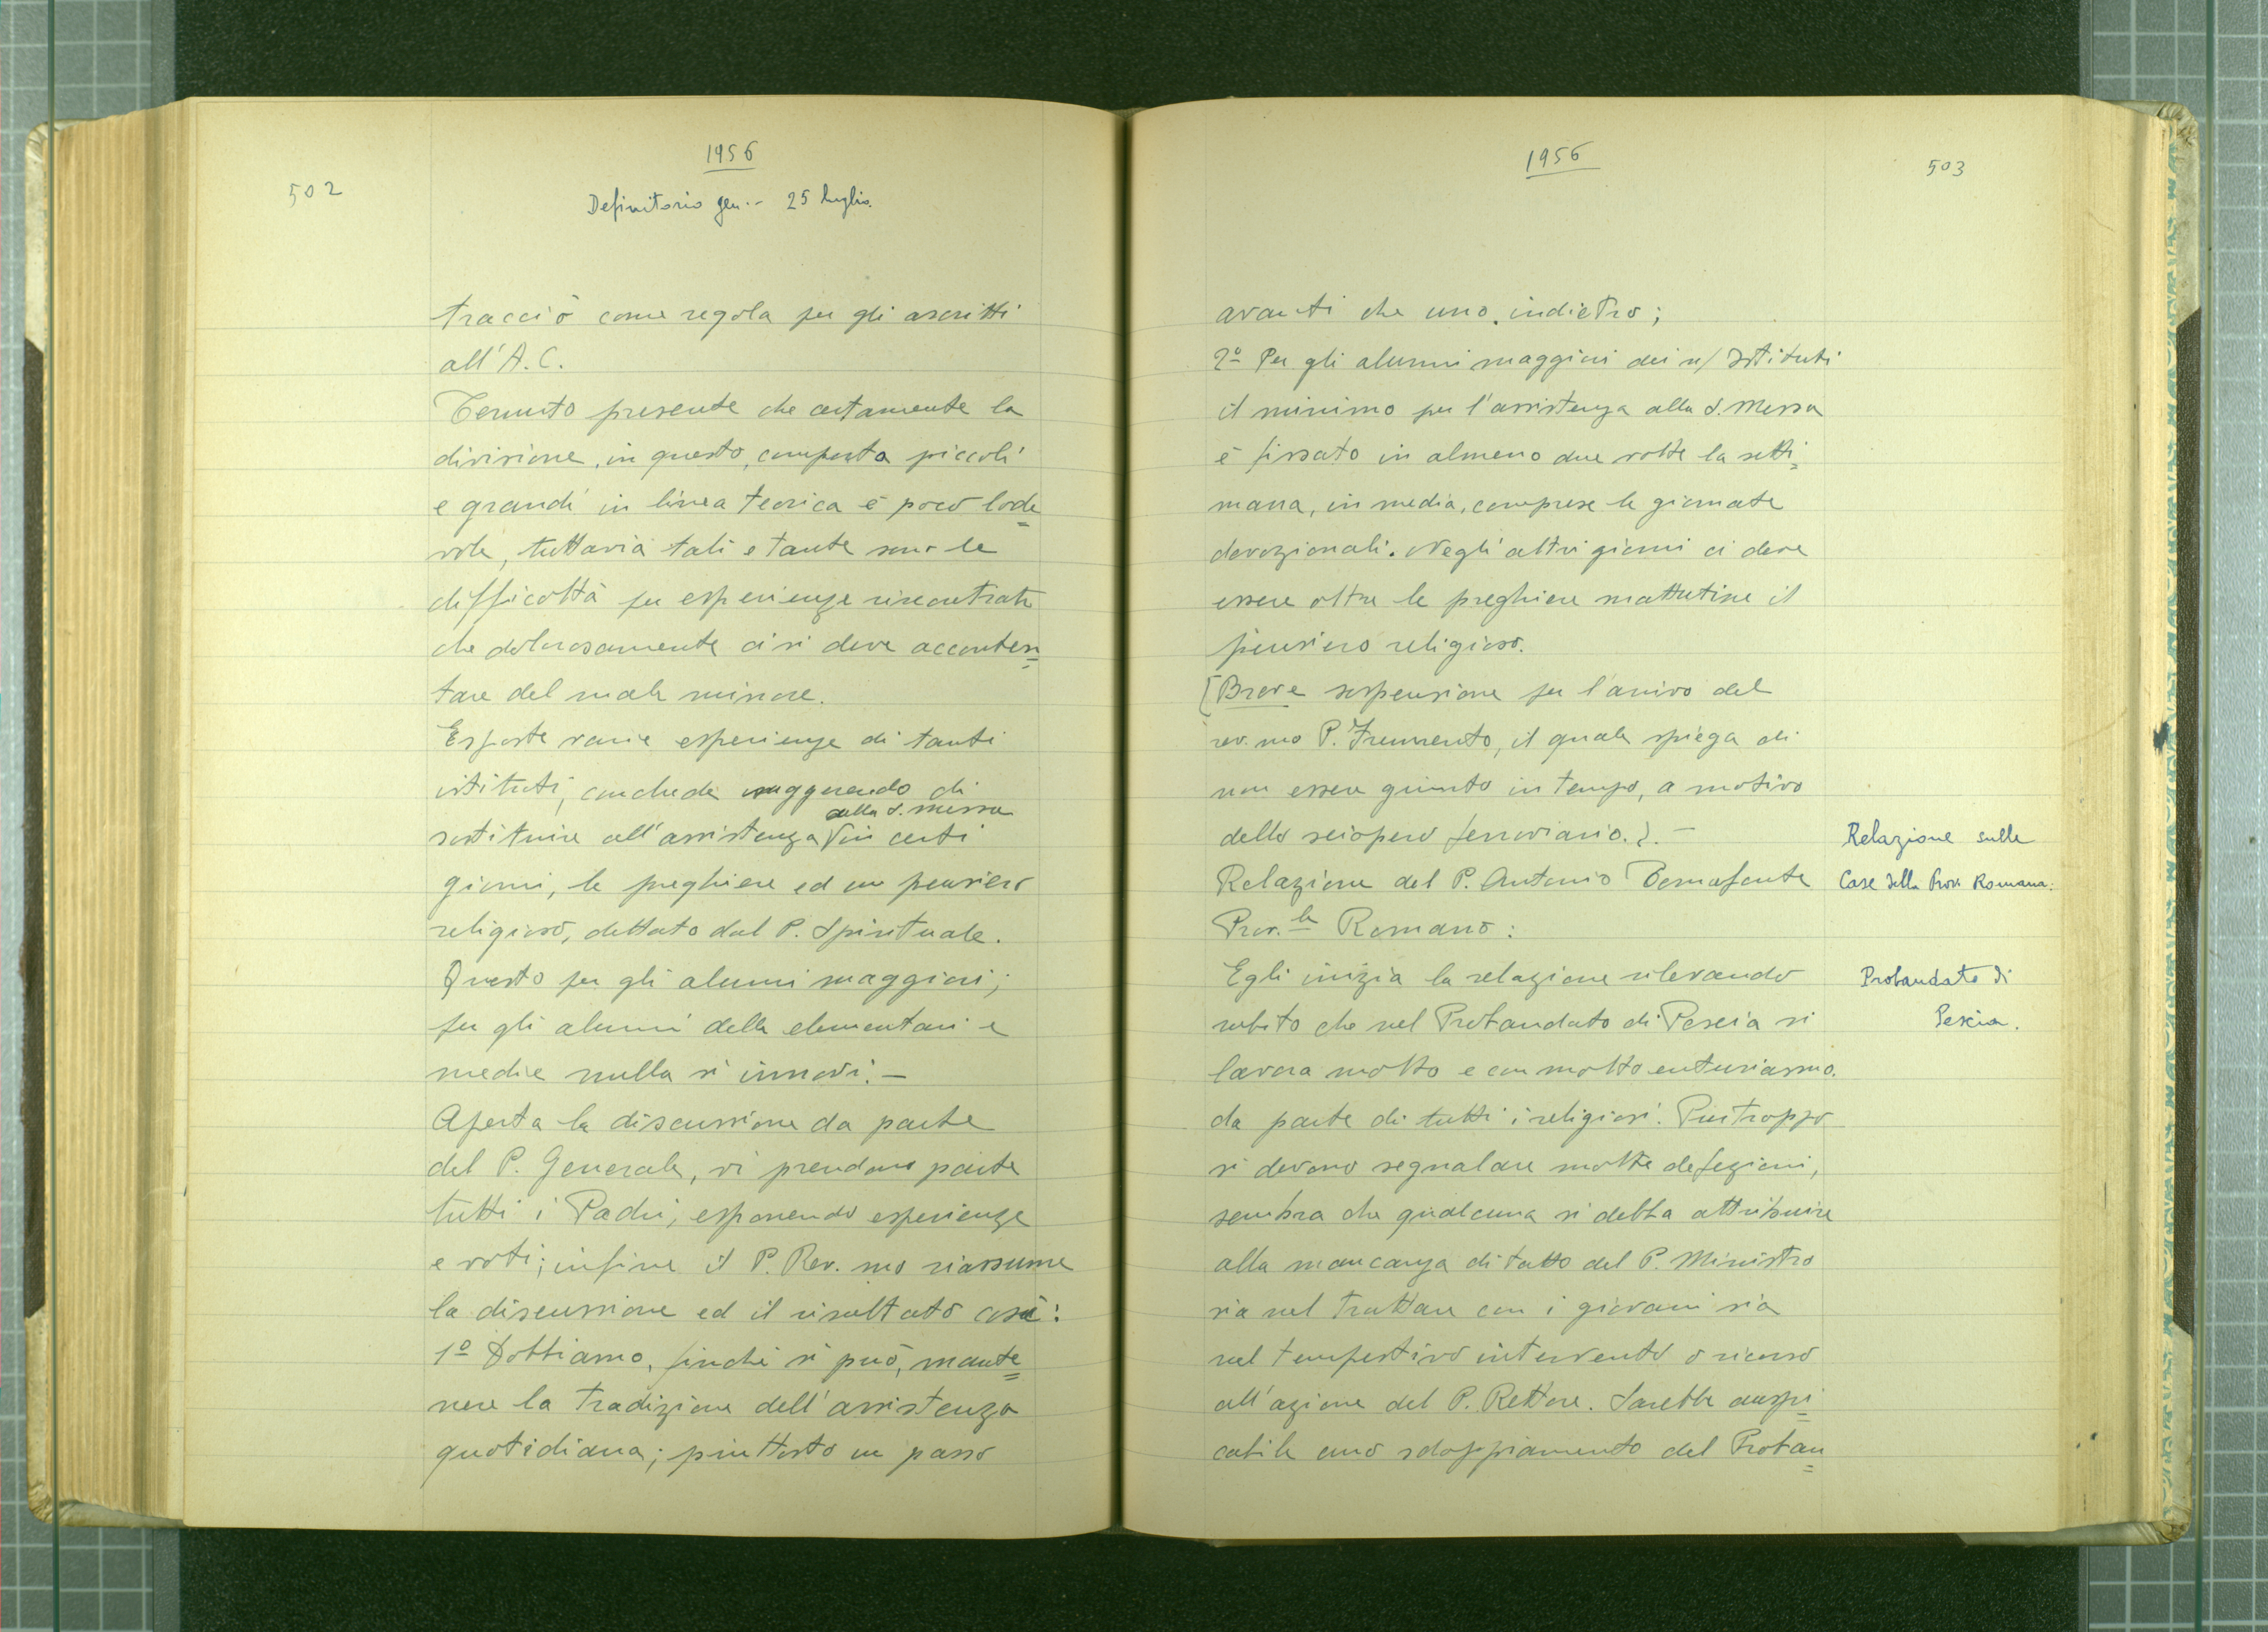 502
1956
Definitorio gen.- 25 luglio.
tracciò come regola per gli ascritti
all'A.C.
Tenuto presente che certamente la
divisione, in questo, comporta piccoli
e grandi in linea teorica è poco lode=
vole, tuttavia tali e tante sono le
difficoltà per esperienze riscontrate
che dolorosamente ci si deve acconten=
tare del male minore.
Esposte varie esperienze di tanti
istituti, conclude suggerendo di
alla S. Messa
sostituire all'assistenza V in certi
giorni, le preghiere ed un pensiero
religioso, dettato dal P. Spirituale.
Questo per gli alunni maggiori;
per gli alunni delle elementari e
medie nulla si innovi. -
Aperta la discussione da parte
del P. Generale, vi prendono parte
tutti i Padri, esponendo esperienze
e voti; infine il P. Rev.mo riassume
la discussione ed il risultato così:
1º Dobbiamo, finchè si può, mante=
nere la tradizione dell'assistenza
quotidiana; piuttosto un passo
1956
503
avanti che uno indietro;
2º Per gli alunni maggiori dei n/ Istituti
il minimo per l'assistenza alla S. Messa
è fissato in almeno due volte la setti=
mana, in media, comprese le giornate
devozionali. Negli altri giorni ci deve
essere oltre le preghiere mattutine il
pensiero religioso.
[Breve sospensione per l'arrivo del
rev.mo P. Frumento, il quale spiega di
non essere giunto in tempo, a motivo
dello sciopero ferroviario.]. -
Relazione sulle
Case della Prov. Romana.
Relazione del P. Antonio Temofonte
Prov.le Romano:
Probandato di
Pescia.
Egli inizia la relazione rilevando
subito che nel Probandato di Pescia si
lavora molto e con molto entusiasmo.
da parte di tutti i religiosi. Purtroppo
si devono segnalare molte defezioni,
sembra che qualcuna si debba attribuire
alla mancanza di tatto del P. Ministro
sia nel trattare con i giovani sia
nel tempestivo intervento o ricorso
all'azione del P. Rettore. Sarebbe auspi=
cabile uno sdoppiamento del Proban=